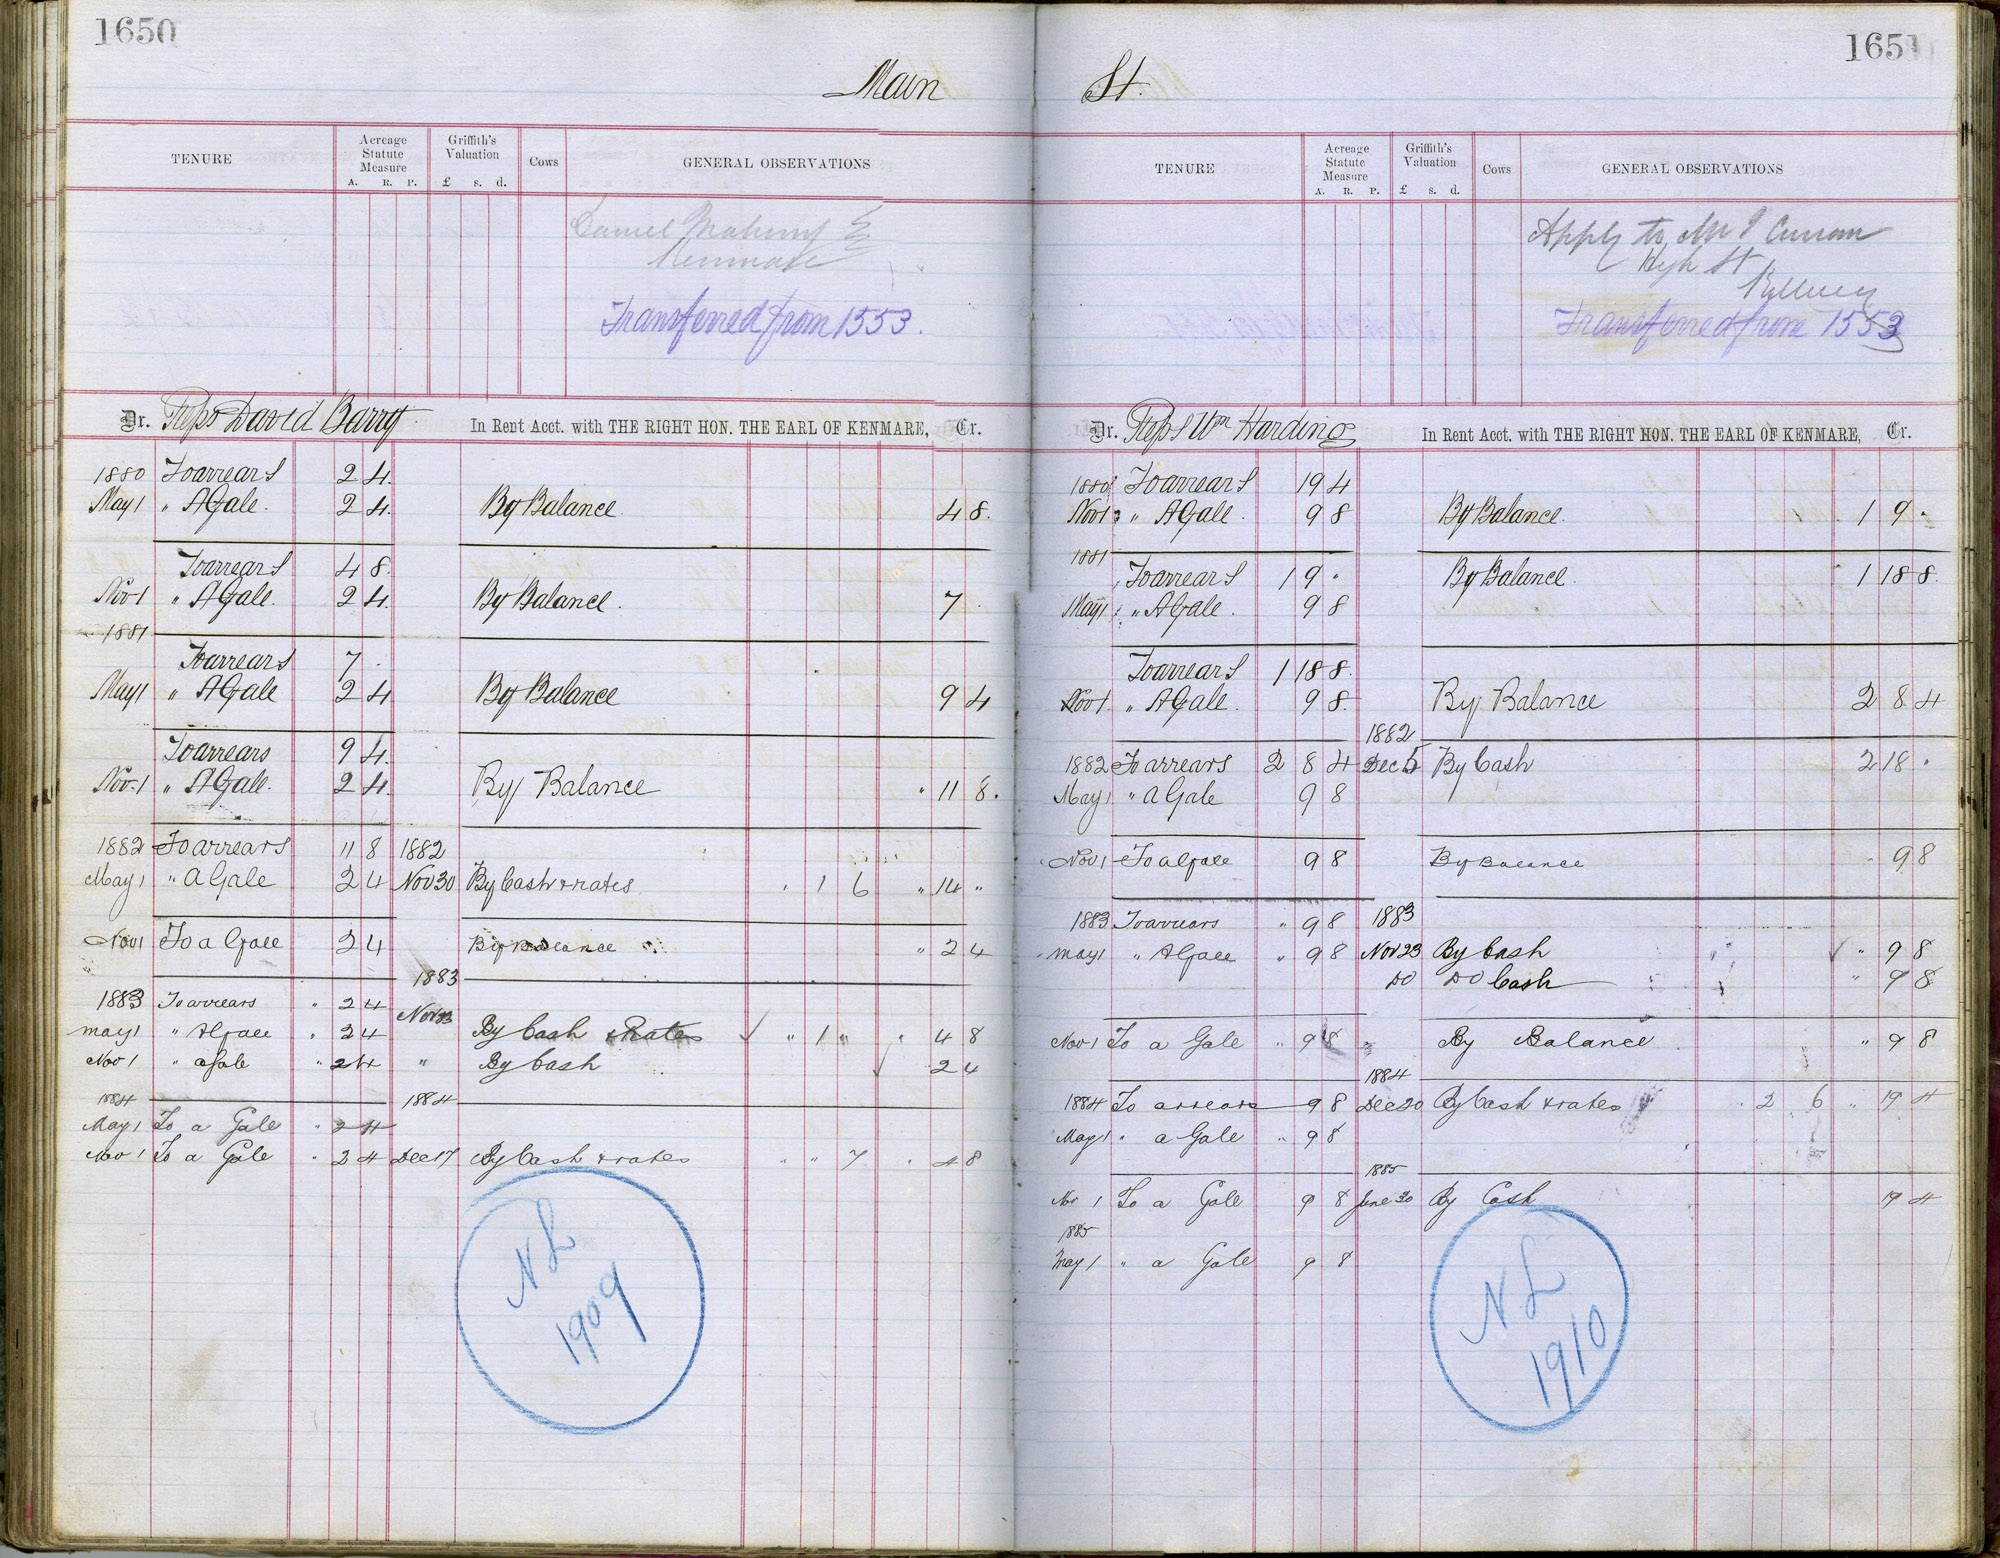 1650
Main
TENURE
Acreage Statute Measure
A. R. P.
Griffith's Valuation
£ s. d.
Cows
GENERAL OBSERVATIONS
Daniel
Kenmare
Transferred from 1553.
Dr. Reps David Barry In Rent Acct. with THE RIGHT HON. THE EARL OF KENMARE, Cr.
1880 To arrears 2 4
May 1 " A Gale. 2 4. By Balance. 4 8.
To arrears 4 8.
Nov 1 " A Gale. 2 4. By Balance. 7
1881
To arrears 7
May 1 " A Gale 2 4 By Balance 9 4
To arrears 9 4.
Nov. 1 " A Gale. 2 4. By Balance " 11 8.
1882 To arrears 11 8 1882
May 1 " A Gale 2 4 Nov 30 By Cash & rates " 1 6 " 14 "
Nov 1 To a Gale 2 4 By Balance " 2 4
1883
1883 To arrears " 2 4
May 1 " A Gale " 2 4 Nov 23 By Cash & Rates ✓ " 1 " " 4 8
Nov 1 " a Gale " 2 4 " By Cash ✓ 2 4
1884 1884
May 1 To a Gale " 2 4
Nov 1 To a Gale " 2 4 Dec 17 By Cash & rates " " 7 " 4 8
N L
1909
1651
St.
TENURE
Acreage Statute Measure
A. R. P.
Griffith's Valuation
£ s. d.
Cows
GENERAL OBSERVATIONS
Apply to Mr J Curran
High St
Killarney
Transferred from 1553
Dr. Reps Wm Harding In Rent Acct. with THE RIGHT HON. THE EARL OF KENMARE, Cr.
1880 To arrears 19 4
Nov 1 " A Gale. 9 8 By Balance. 1 9 "
1881
To arrears 1 9 " By Balance. 1 18 8.
May 1 " A Gale. 9 8
To arrears 1 18 8.
Nov 1 " A Gale. 9 8. By Balance 2 8 4
1882
1882 To arrears 2 8 4 Dec 5 By Cash 2 18 "
May 1 " a Gale 9 8
Nov 1 To a Gale 9 8 By Balance " 9 8
1883 To arrears " 9 8 1883
May 1 " A Gale " 9 8 Nov 23 By Cash ✓ " 9 8
DO DO Cash " 9 8
Nov 1 To a Gale " 9 8 By Balance " 9 8
1884
1884 To arrears 9 8 Dec 20 By Cash & rates " 2 6 " 19 4
May 1 " a Gale " 9 8
1885
Nov 1 To a Gale 9 8 June 30 By Cash 19 4
1885
May 1 " a Gale 9 8
N L
1910